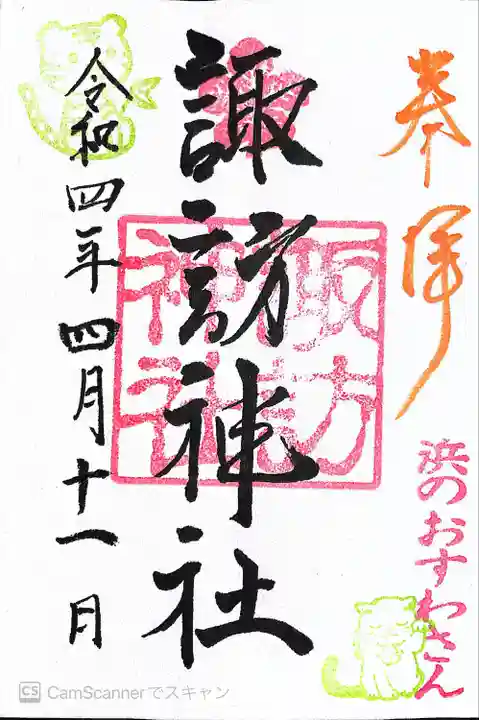 奉拝
浜のおすわさん
諏訪神社
諏訪神社
令和四年四月十一日
CS CamScannerでスキャン